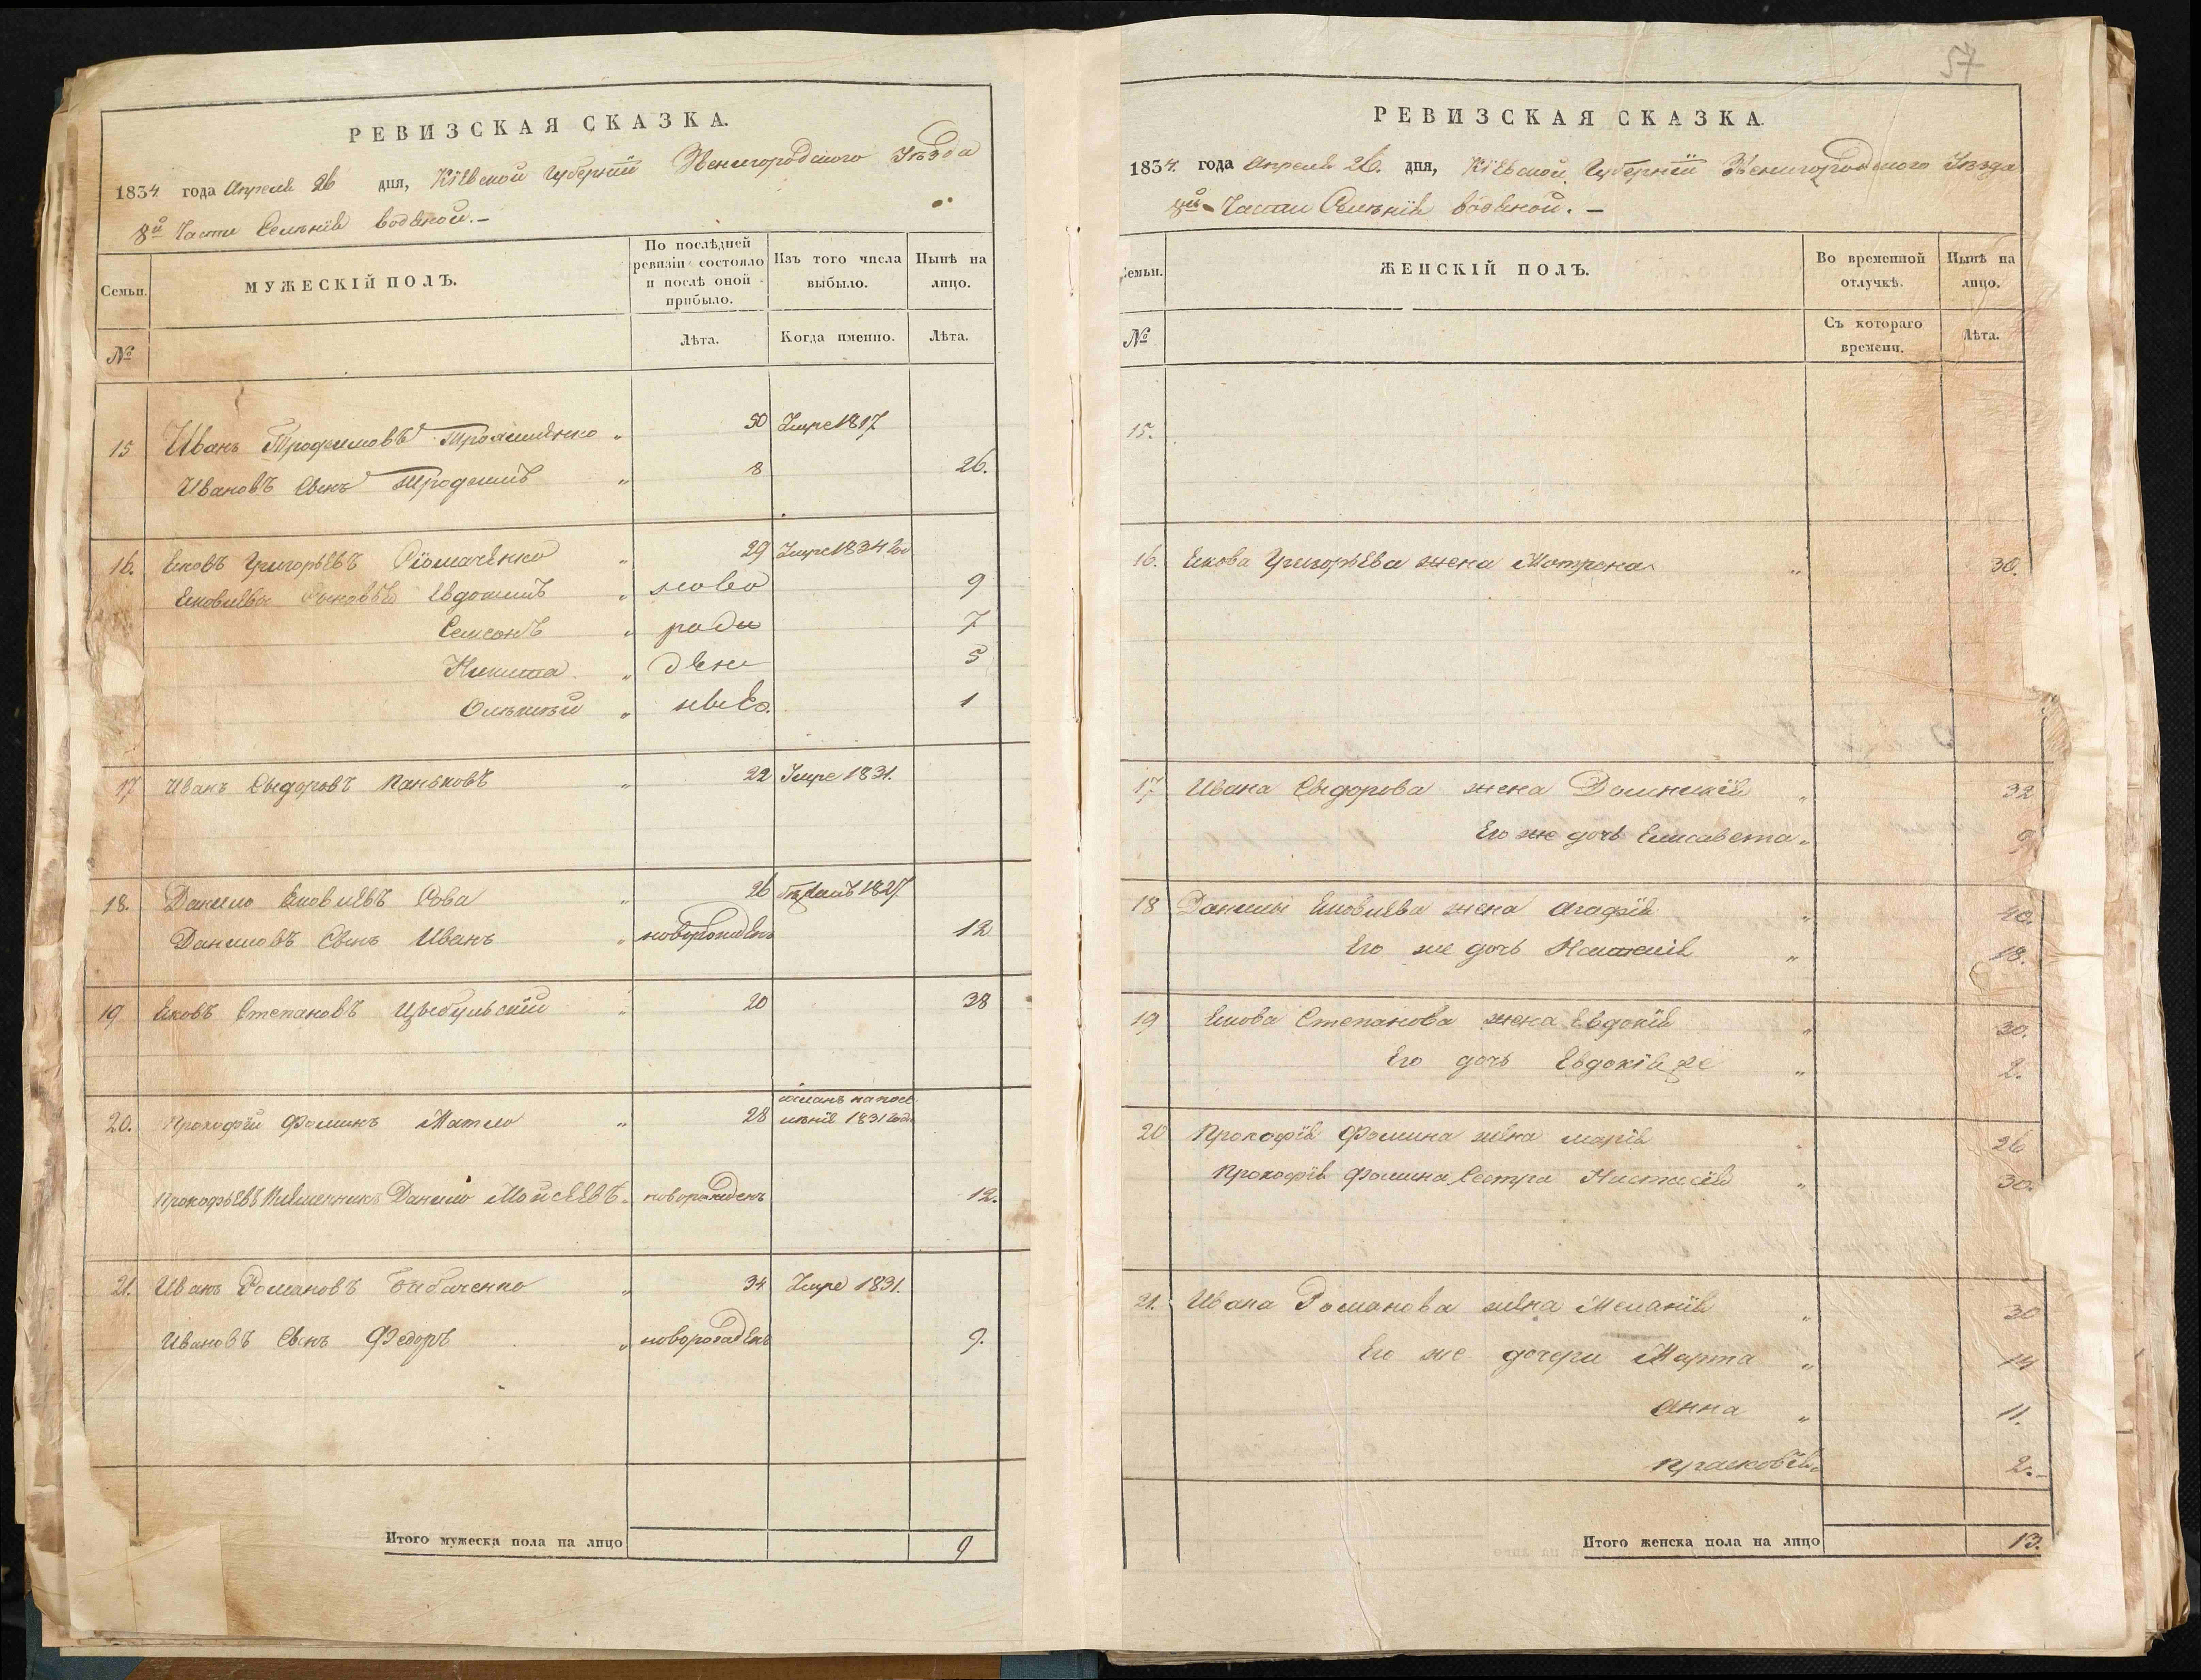 57
РЕВИЗСКАЯ СКАЗКА.
1834 года Апреля 26 дня, Кіевской Губерніи Звенигородского Уѣзда
8й Части Селенія Водяной.-
Семьи.
МУЖЕСКІЙ ПОЛЪ.
По послѣдней ревизіи состояло и послѣ оной прибыло.
Изъ того числа выбыло.
Нынѣ на лицо.
№
Лѣта.
Когда именно.
Лѣта.
15 Иванъ Трофимовъ " 50 Умре 1817
Ивановъ Сынъ " 8 26.
16. Яковъ Григорьевъ " 29 Умре 1834 го
Яковлевы Сыновья Евдокимъ " ново 9
Самсонъ " рож 7
Никита " ден 5
Олексѣй " ные. 1
17 Иванъ Сыдоровъ Паньковъ " 22 Умре 1831.
18. Данило Яковлевъ Сова " 26 бѣжалъ 1827
Даниловъ Сынъ Иванъ " новорожденъ 12
19 Яковъ Степановъ Цыбульскій " 20 38
20. Прокофій Фоминъ Мат " 28 на посе
ленія 1831 года
Прокофьевъ Племенникъ Данило Мойсеевъ " новорожденъ 12.
21. Иванъ Романовъ Бабаченко " 34 Умре 1831.
Ивановъ Сынъ Федоръ " новорожденъ 9.
Итого мужеска пола на лицо 9
РЕВИЗСКАЯ СКАЗКА.
1834. года Апреля 26. дня, Кіевской Губерніи Звенигородского Уѣзда
8й Части Селенія Водяной. -
Семьи.
ЖЕНСКІЙ ПОЛЪ.
Во временной отлучкѣ.
Нынѣ на лицо.
№
Съ котораго времени.
Лѣта.
15.
16. Якова Григорьева жена Мотрона " 30.
17 Ивана Сыдорова жена Домникія " 32
Его же дочь Елисавета " 9
18 Данилы Яковлева жена Агафія " 40.
Его же дочь " 18.
19 Якова Степанова жена Евдокія " 30.
Его дочь Евдокія 2е " 2.
20 Прокофія Фомина жена Марія 26
Прокофія Фомина Сестра Настасія " 30.
21. Ивана Романова жена Меланія " 30
Его же дочери Марта " 14
Анна " 11.
Прасковія " 2.-
Итого женска пола на лицо 13.